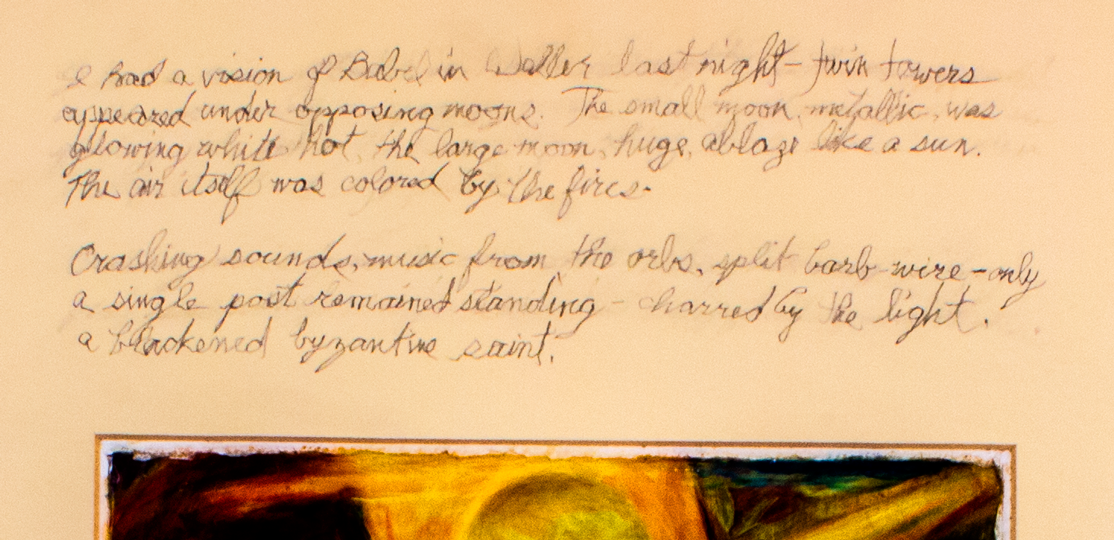 I had a vision of Babel in Waller last night - twin towers
appeared under opposing moons. The small moon, metallic, was
glowing white hot, the large moon, huge, ablaze like a sun.
The air itself was colored by the fires.
Crashing sounds, music from the orbs, split barb-wire - only
a single post remained standing - charred by the light.
a blackened byzantine saint.